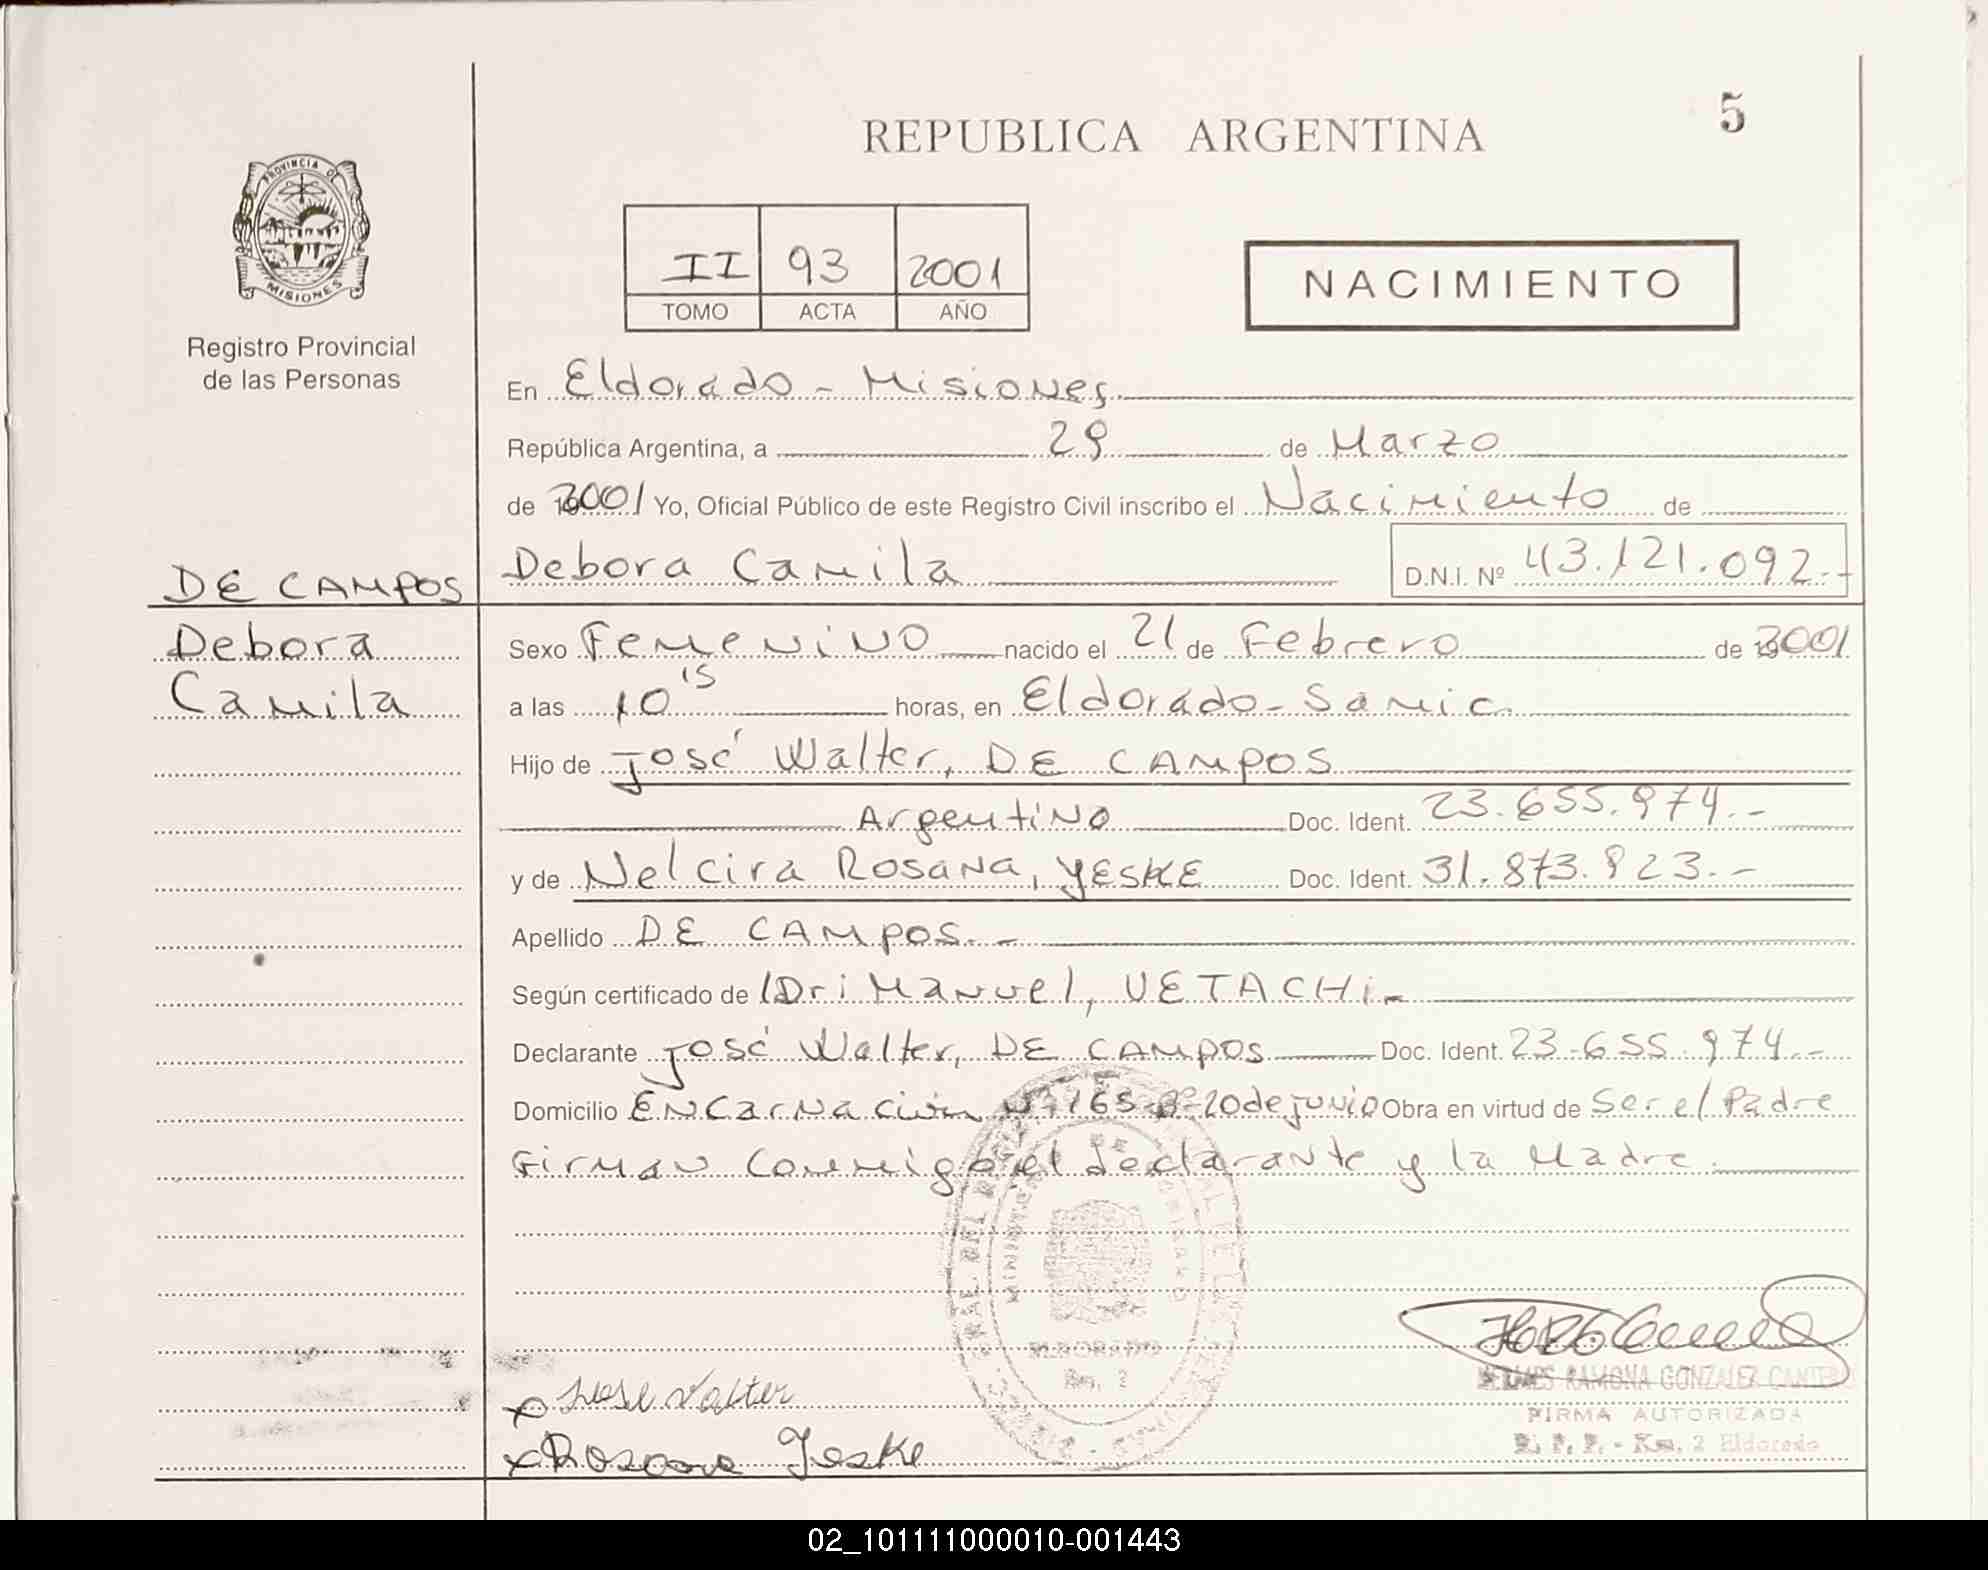 REPUBLICA ARGENTINA
5
PROVINCIA DE
MISIONES
Registro Provincial
de las Personas
II 93 2001
TOMO ACTA AÑO
NACIMIENTO
En Eldorado - Misiones.
República Argentina, a 29 de Marzo
de 2001 Yo, Oficial Público de este Registro Civil inscribo el Nacimiento de
DE CAMPOS
Debora Camila
D.N.I. Nº 43.121.092.-
Debora
Camila
Sexo Femenino nacido el 21 de Febrero de 2001
a las 10 15 horas, en Eldorado - Samic.
Hijo de José Walter, DE CAMPOS
Argentino Doc. Ident. 23.655.974.-
y de Nelcira Rosana, YESKE Doc. Ident. 31.873.823.-
Apellido DE CAMPOS.-
Según certificado de Manuel, VETACHi.-
Declarante José Walter, DE CAMPOS Doc. Ident. 23.655.974.-
Domicilio Encarnación Nº 165 Bº 20 de junio Obra en virtud de Ser el Padre
Firman Conmigo el declarante y la Madre.
ELDORADO
Km. 2
x Jose Valter
x Rosana Yeske
RAMONA GONZALEZ
FIRMA AUTORIZADA
R. P. P. - Km. 2 Eldorado
02_101111000010-001443